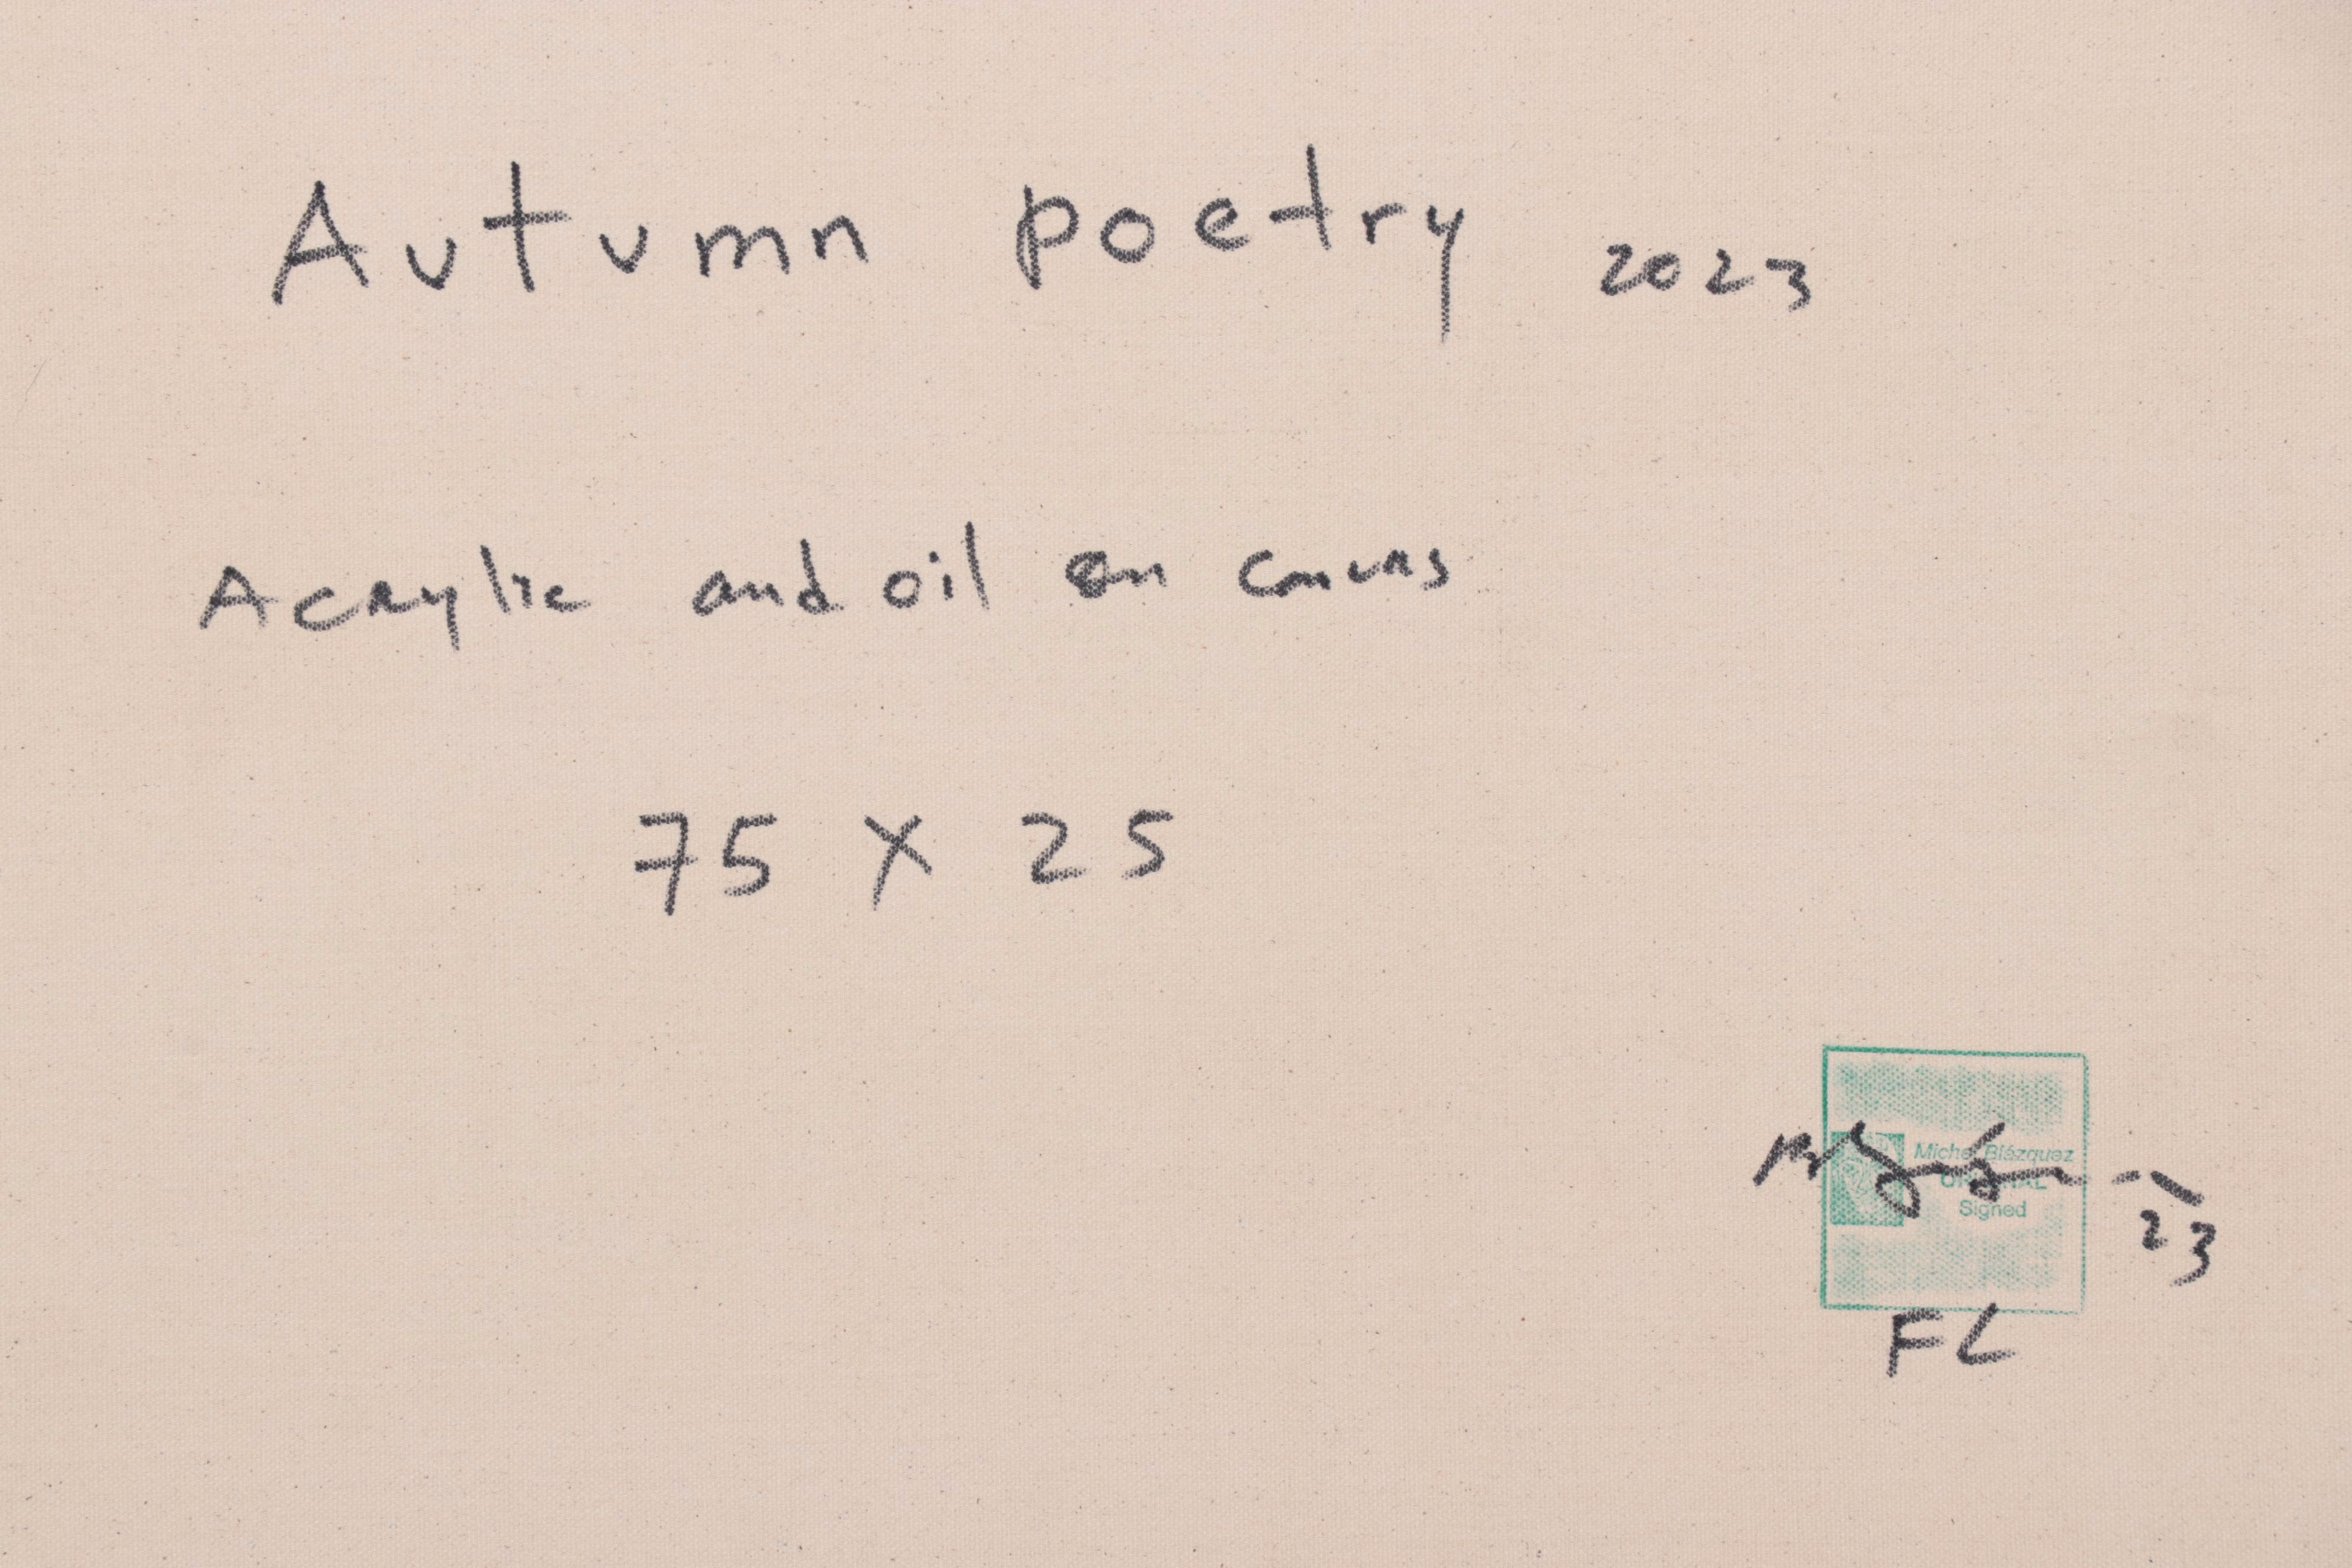 Autumn poetry 2023
Acrylic and oil on canvas
75 X 25
Michel Blázquez
ORIGINAL
Signed
23
FL